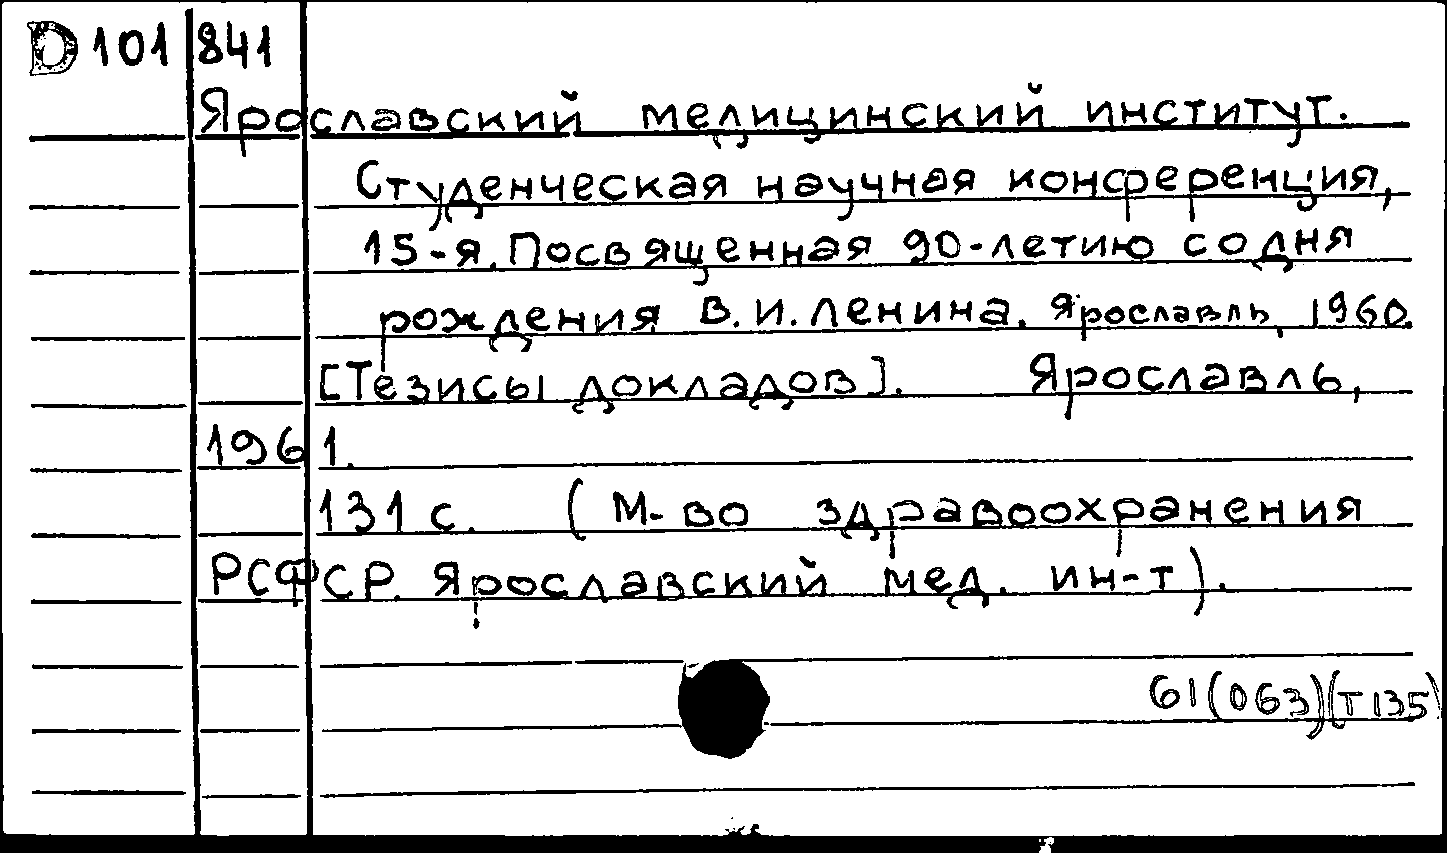 D 101 841
Ярославский медицинский институт.
Студенческая научная конференция,
15-я. Посвященная 90-летию со дня
рождения В.И. Ленина. Ярославль, 1960.
[Тезисы докладов]. Ярославль,
1961.
131 с. (М-во здравоохранения
РСФСР. Ярославский мед. ин-т).
61(063)(Т135)